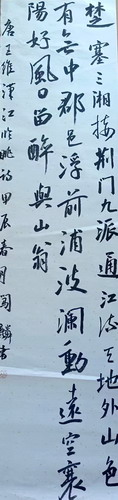 楚塞三湘接荆门九派通江流天地外山色
有无中郡邑浮前浦波澜動遠空襄
陽好風日留醉與山翁
唐王维漢江临眺詩甲辰春月闯麟书